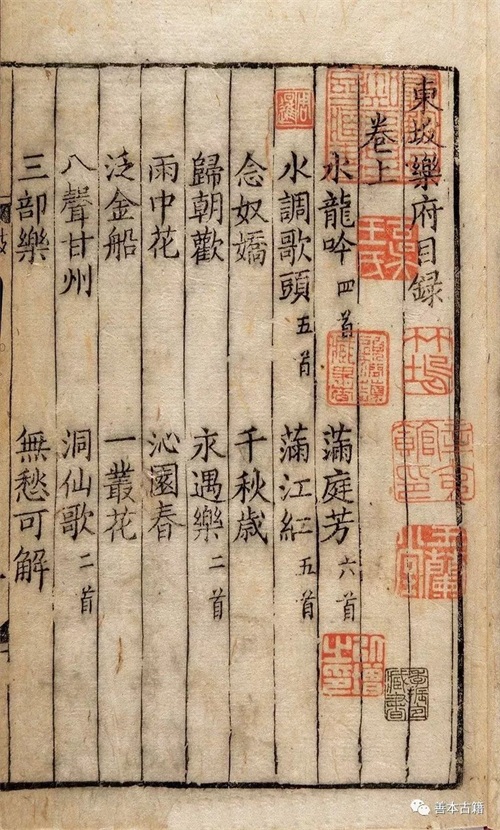 東坡樂府目録
卷上
水龍吟四首 滿庭芳六首
水調歌頭五首 滿江紅五首
念奴嬌 千秋歲
歸朝歡 永遇樂二首
雨中花 沁園春
泛金船 一叢花
八聲甘州 洞仙歌二首
三部樂 無愁可解
周暹
竹塢
辛夷館印
玉蘭堂
季振宜藏書
善本古籍